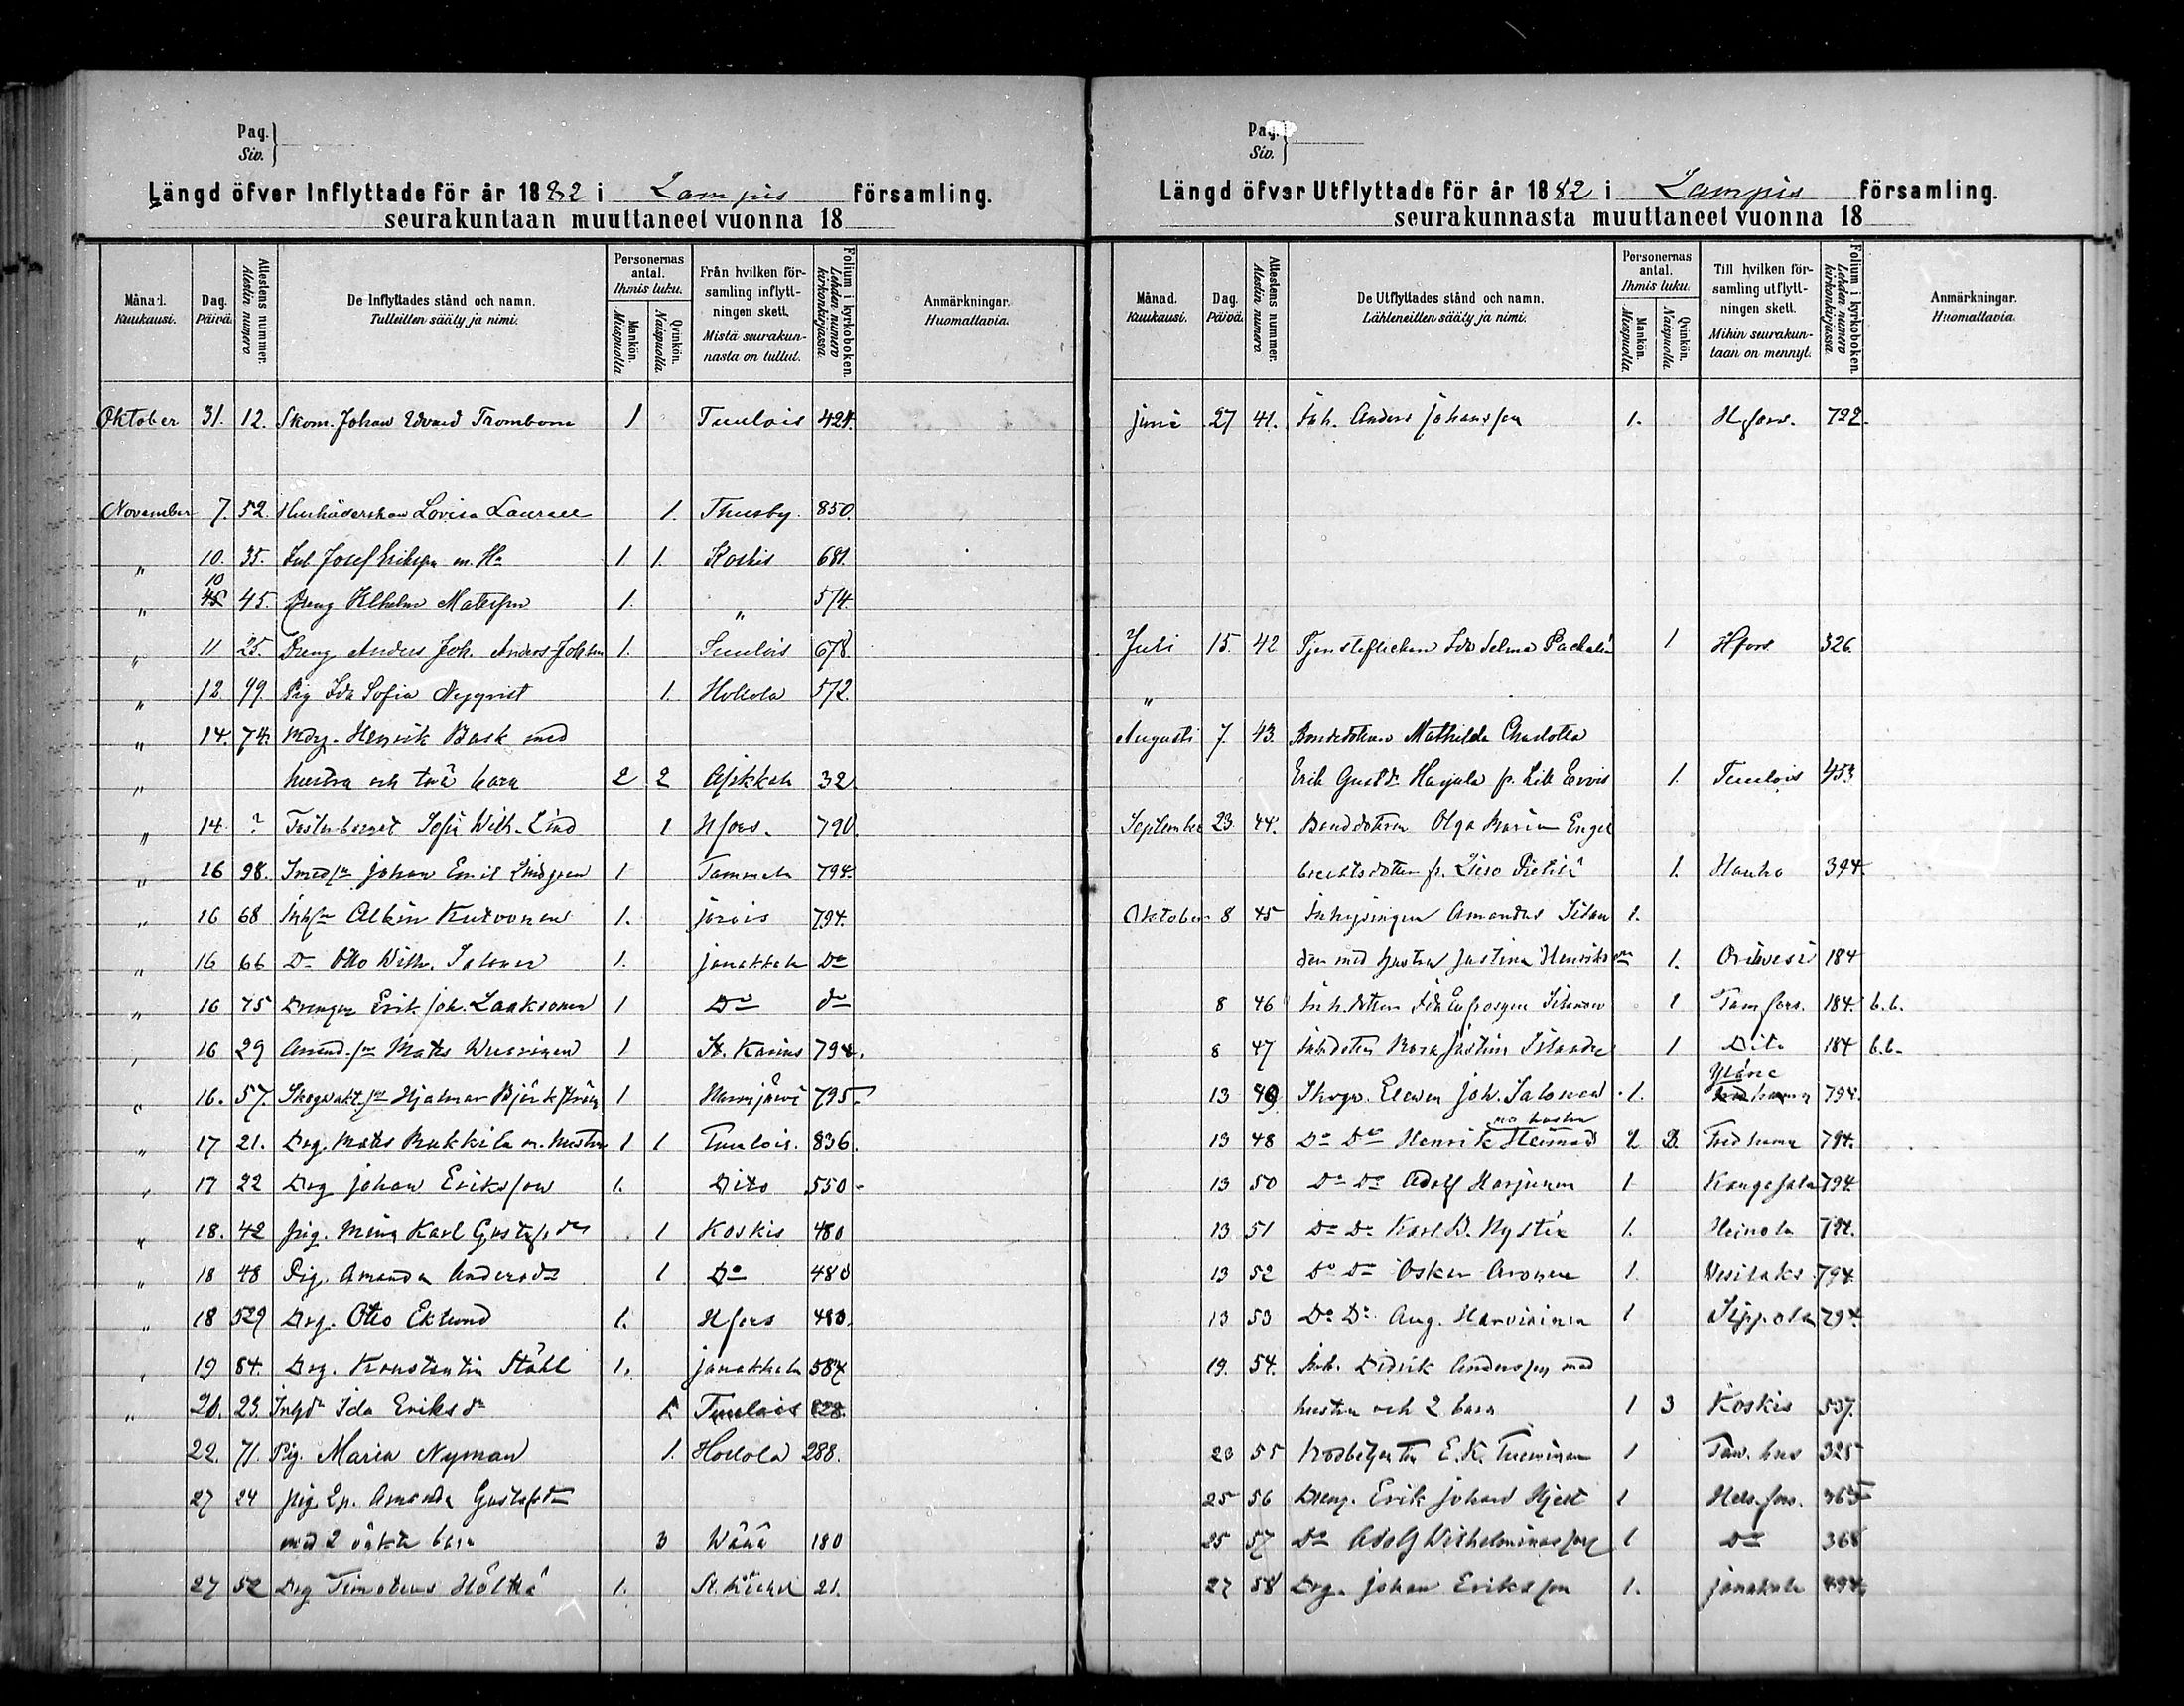 Pag.
Siv.
Längd öfver Inflyttade för år 1882 i Lampis församling.
seurakuntaan muuttaneet vuonna 18
Månad. Kuukausi.
Dag. Päivä
Attestens nummer. Atestin numero
De Inflyttades stånd och namn. Tulleitten sääty ja nimi.
Personernas antal. Ihmis luku.
Mankön. Miespuolia
Qvinkön. Naispuolia
Från hvilken församling inflyttningen skett. Mistä seurakunnasta on tullut.
Folium i kyrkoboken. Lehden numero kirkonkirjassa.
Anmärkningar. Huomattavia.
Oktober 31. 12. Skom. Johan Edvard Trombom 1 Tuulois 424.
November 7. 52. Lovisa 1. Thusby 850.
" 10. 35. Josef Eriksson m. Hu 1 1. Koskis 681.
" 10 45. Dreng Matsson 1. " 574
" 11 25. Dreng Anders Joh. Andersson 1. Tuulois 678
" 12 99. Pig Ida Sofia Nyqvist 1. Hollola 572
" 14. 74. Henrik Bask med
" hustru och två barn 2 2 32
" 14 ? Sofia Wilh. Lind 1 Hfors. 790
" 16 98. Johan Emil Lindgren 1 Tammela 794.
" 16 68 Albin Kutvonen 1. Jorois 794.
" 16 66 Do Otto Wilh. Salonen 1. Janakkala Do
" 16 75 Drengen Erik Joh. Laaksonen 1 Do do
" 16 29 Mats 1 St. Karins 794.
" 16. 57. Skogvakt. Hjalmar Björkström 1 795
" 17 21. Drg. Mats Rukkila m. hustru 1 1 Tuulois. 836.
" 17 22 Drg Johan Eriksson 1. Dito 550
" 18. 42 Pig. Mina Karl Gustafsdr 1 Koskis 480
" 18 48 Pig. Amanda Andersdr 1 Do 480
" 18 529 Drg. Otto Eklund 1. Hfors 480.
" 19 84. Drg. Konstantin Ståhl 1. Janakkala 587
" 20. 23. Ida Eriksdr 1. Tuulois 828.
22. 71. Pig. Maria Nyman 1. Hollola 288.
27 24 Pig Amanda Gustafsdr
med 2 oäkta barn 3 Wånå 180
27 52 Drg Timoteus Hölttä 1. St. Michel 21.
Pag.
Siv.
Längd öfvsr Utflyttade för år 1882 i Lampis församling.
seurakunnasta muuttaneet vuonna 18
Månad. Kuukausi.
Dag. Päivä.
Attestens nummer. Atestin numero
De Utflyttades stånd och namn. Lähteneitten sääty ja nimi.
Personernas antal. Ihmis luku.
Mankön. Miespuolia
Qvinkön. Naispuolia.
Till hvilken församling utflyttningen skett. Mihin seurakuntaan on mennyt.
Folium i kyrkoboken. Lehden numero kirkonkirjassa.
Anmärkningar. Huomattavia.
Juni 27 41. Inh. Anders Johansson 1. Hfors. 722.
Juli 15. 42 Tjensteflickan Ida Selma Packalén 1 Hfors 326.
"
Augusti 7. 43. Bondedottern Mathilda Charlotta
Erik Gustdr Harjula fr. Lill Evois 1. Tuulois 453
September 23. 44. Bonddottern Olga Maria Engel
brechtsdotter fr. Liso Pietilä 1. Hauho 394.
Oktober 8 45 Inhysingen Amandus Silan 1.
der med hustru Justina Henriksdr 1. Orihvesi 184
8 46 Inh. dottern Ida Eufrosyne 1 Tamfors. 184. b.b.
8 47 Justina 1 Dito 184 b.b.
13 49 Skogv. Eleven Joh. Salonen 1. 794.
13 48 Do Do Henrik Heinad med hustru 2 Fredshamn 794.
13 50 Do Do Adolf Harjunen 1 Kangasala 794.
13 51 Do Do Karl W. Nystén 1. Heinola 794.
13 52 Do Do Oskar Aronen 1. Wesilaks 794.
13 53 Do Do Aug. 1 Sippola 794.
19. 54. Inh. Didrik Andersson med
hustru och 2 barn 1 3 Koskis 537.
20 55 E. K. Tuominen 1 Taw. hus 325
25 56 Dreng. Erik Johan Hjelt 1 Hels. fors. 365
25 57 Do Adolf Wilhelminasson 1 Do 368
27 58 Drg. Johan Eriksson 1. Janakkala 494.